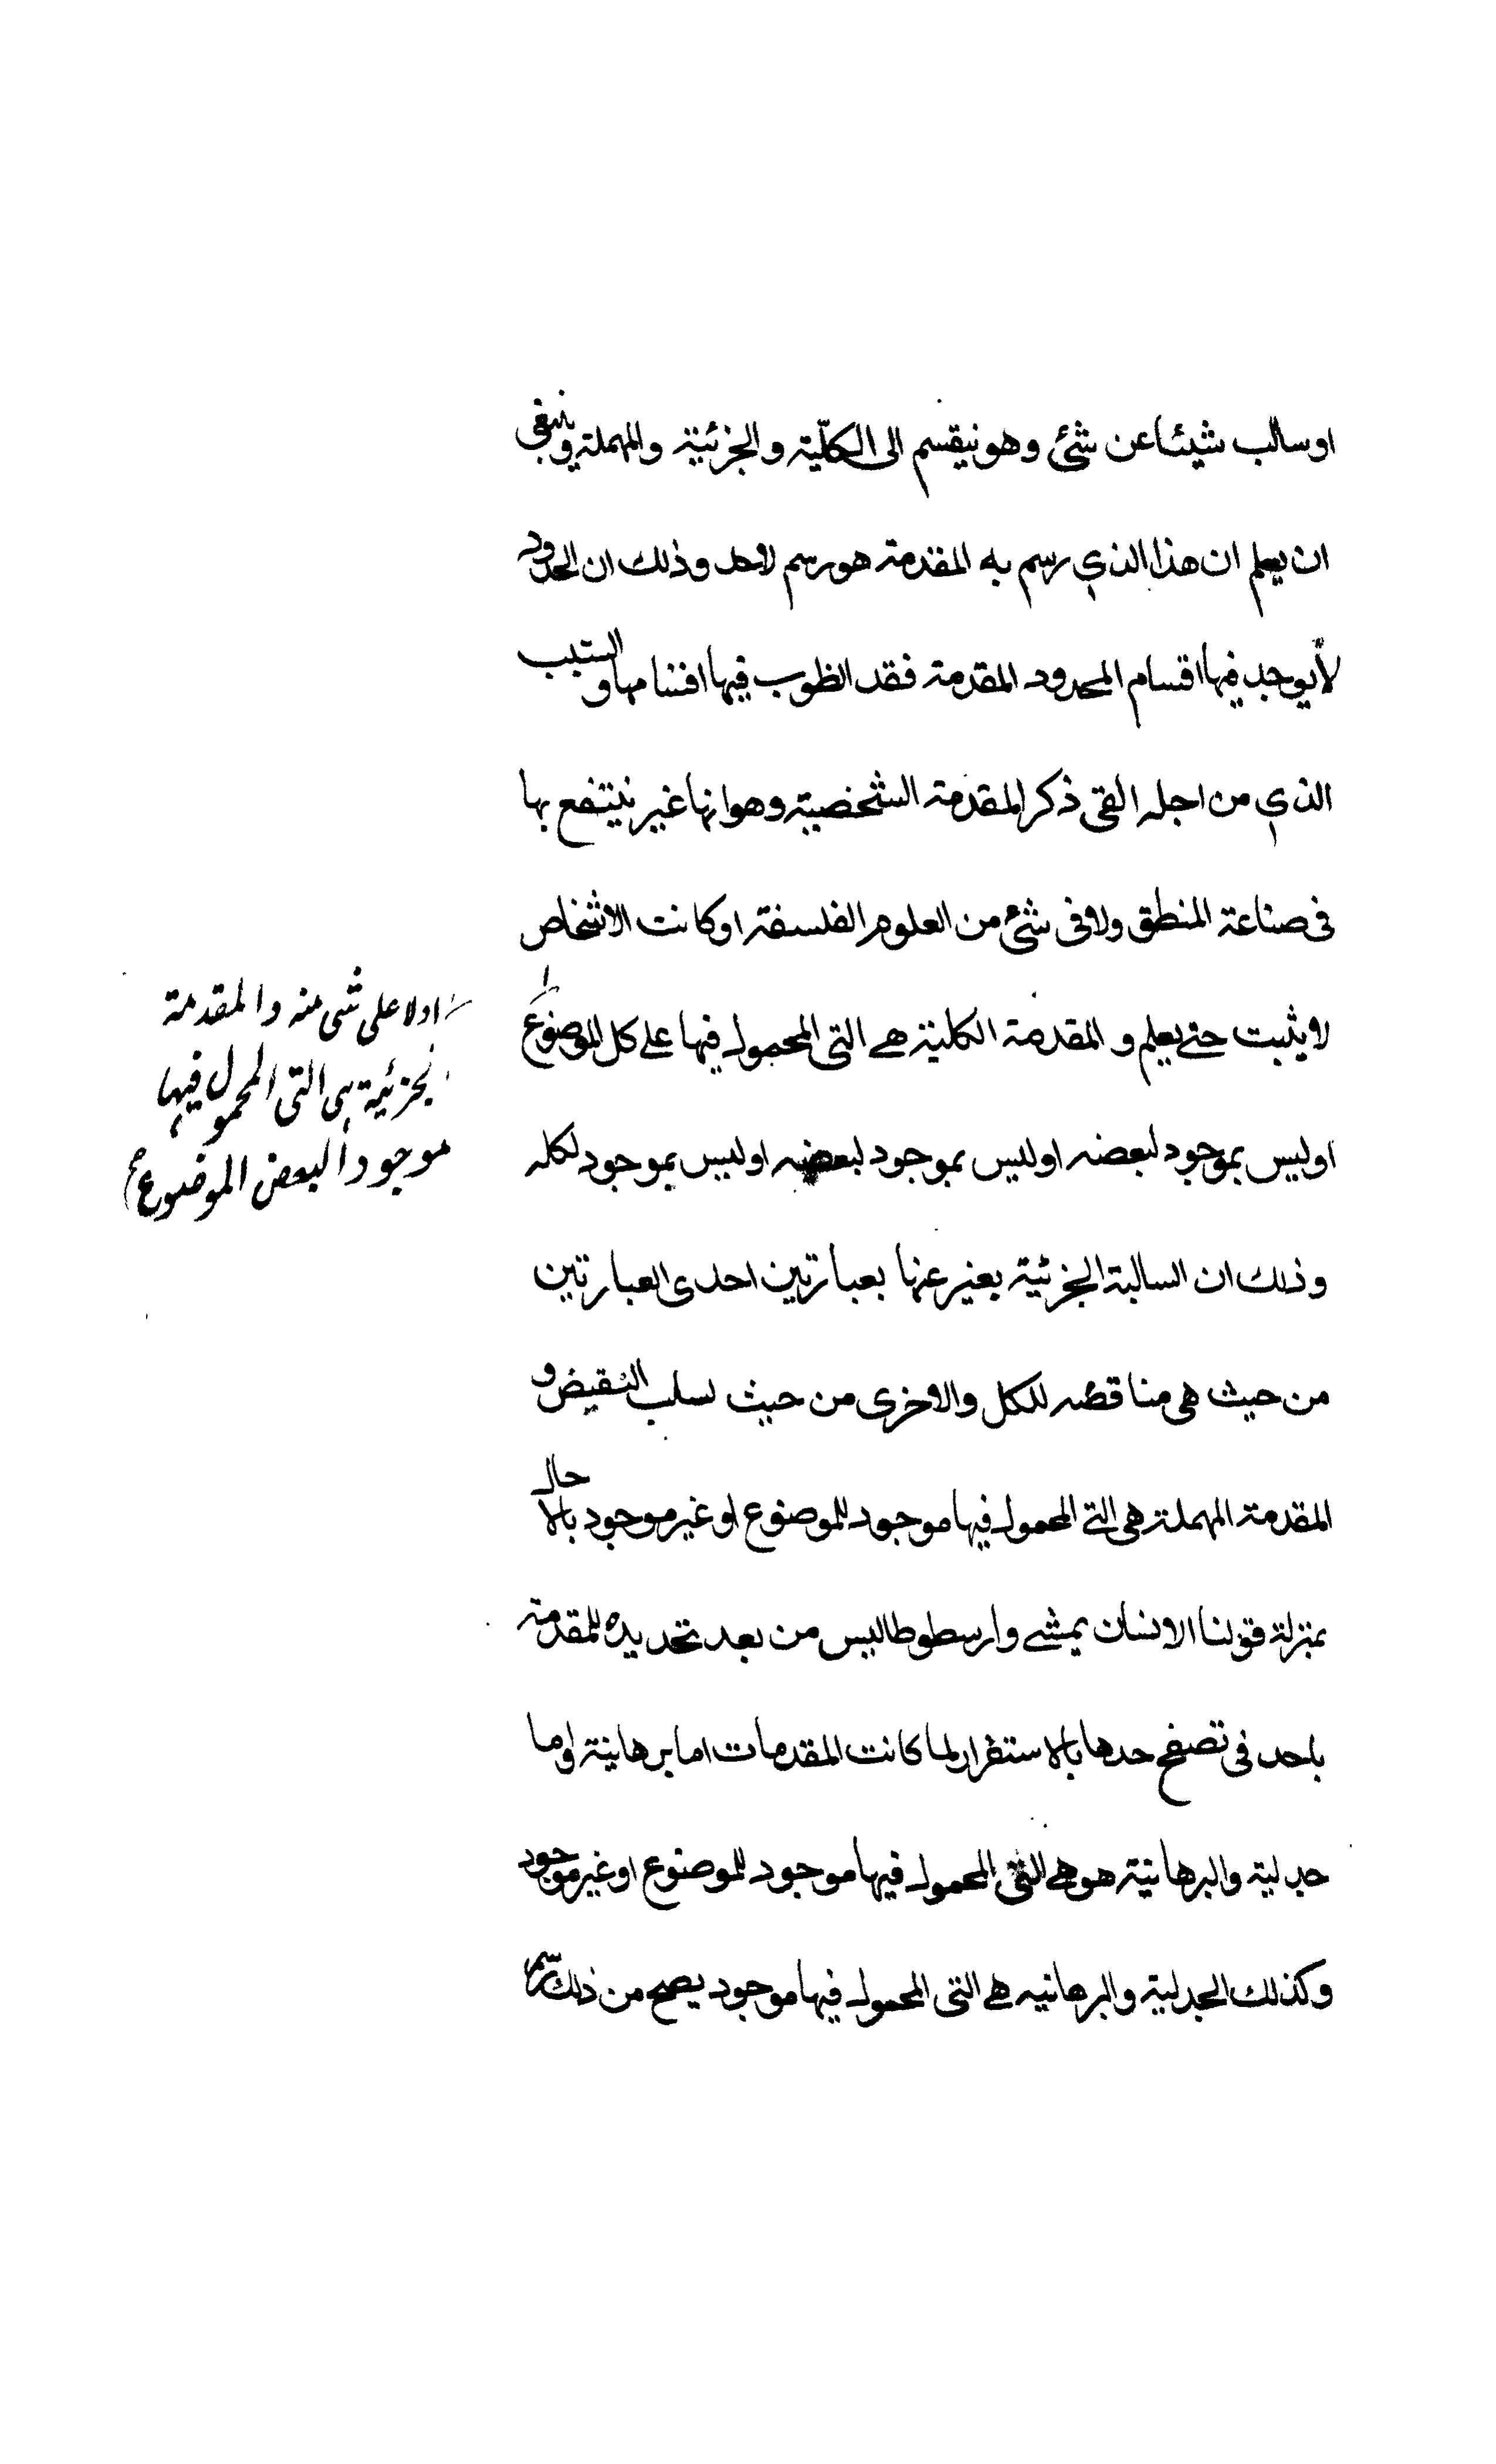 اوسالب شيئا عن شئ وهو نيقسم الى الكلّية والجزئية والمهملة وينبغى
ان يعلم ان هذا الذي رسم به المقدمة هو رسم لاحد وذلك ان الحدود
لأيوجد فيها اقسام المحدود المقدمة فقد انطوب فيها اقسامها والسبب
الذي من اجله القى ذكر المقدمة الشخصية وهو انها غير ينتفع بها
فى صناعة المنطق ولا فى شئ من العلوم الفلسفة او كانت الاشخاص
لا يثبت حتى يعلم و المقدمة الكلية هے التى المحمول فيها على كل الموضوع
او ليس بموجود لبعضه او ليس بموجود لبعضه او ليس بموجود لكله
وذلك ان السالبة الجزئية بعنير عنها بعبارتين احدى العبارتين
من حيث هى مناقضه للكل والاخرى من حيث لسلب النقيض و
المقدمة المهملة هى التے المحمول فيها موجود للموضوع او غير موجود بالا حال
بمنزلة قولنا الانسان يمشے وارسطوطاليس من بعد تحديده للمقدمة
باحد فى تصفح حدها بالاستقرار لما كانت المقدمات اما برهانية او اما
جدلية والبرهانية هو هے التى المحمول فيها موجود للموضوع او غير موجود
وكذلك الجدلية والبرهانيه هے التى المحمول فيها موجود يصح من ذلك رسم
اولا على شى منه والمقدمة
الجزئية هى التى المحمول فيها
موجوداً لبعض الموضوع